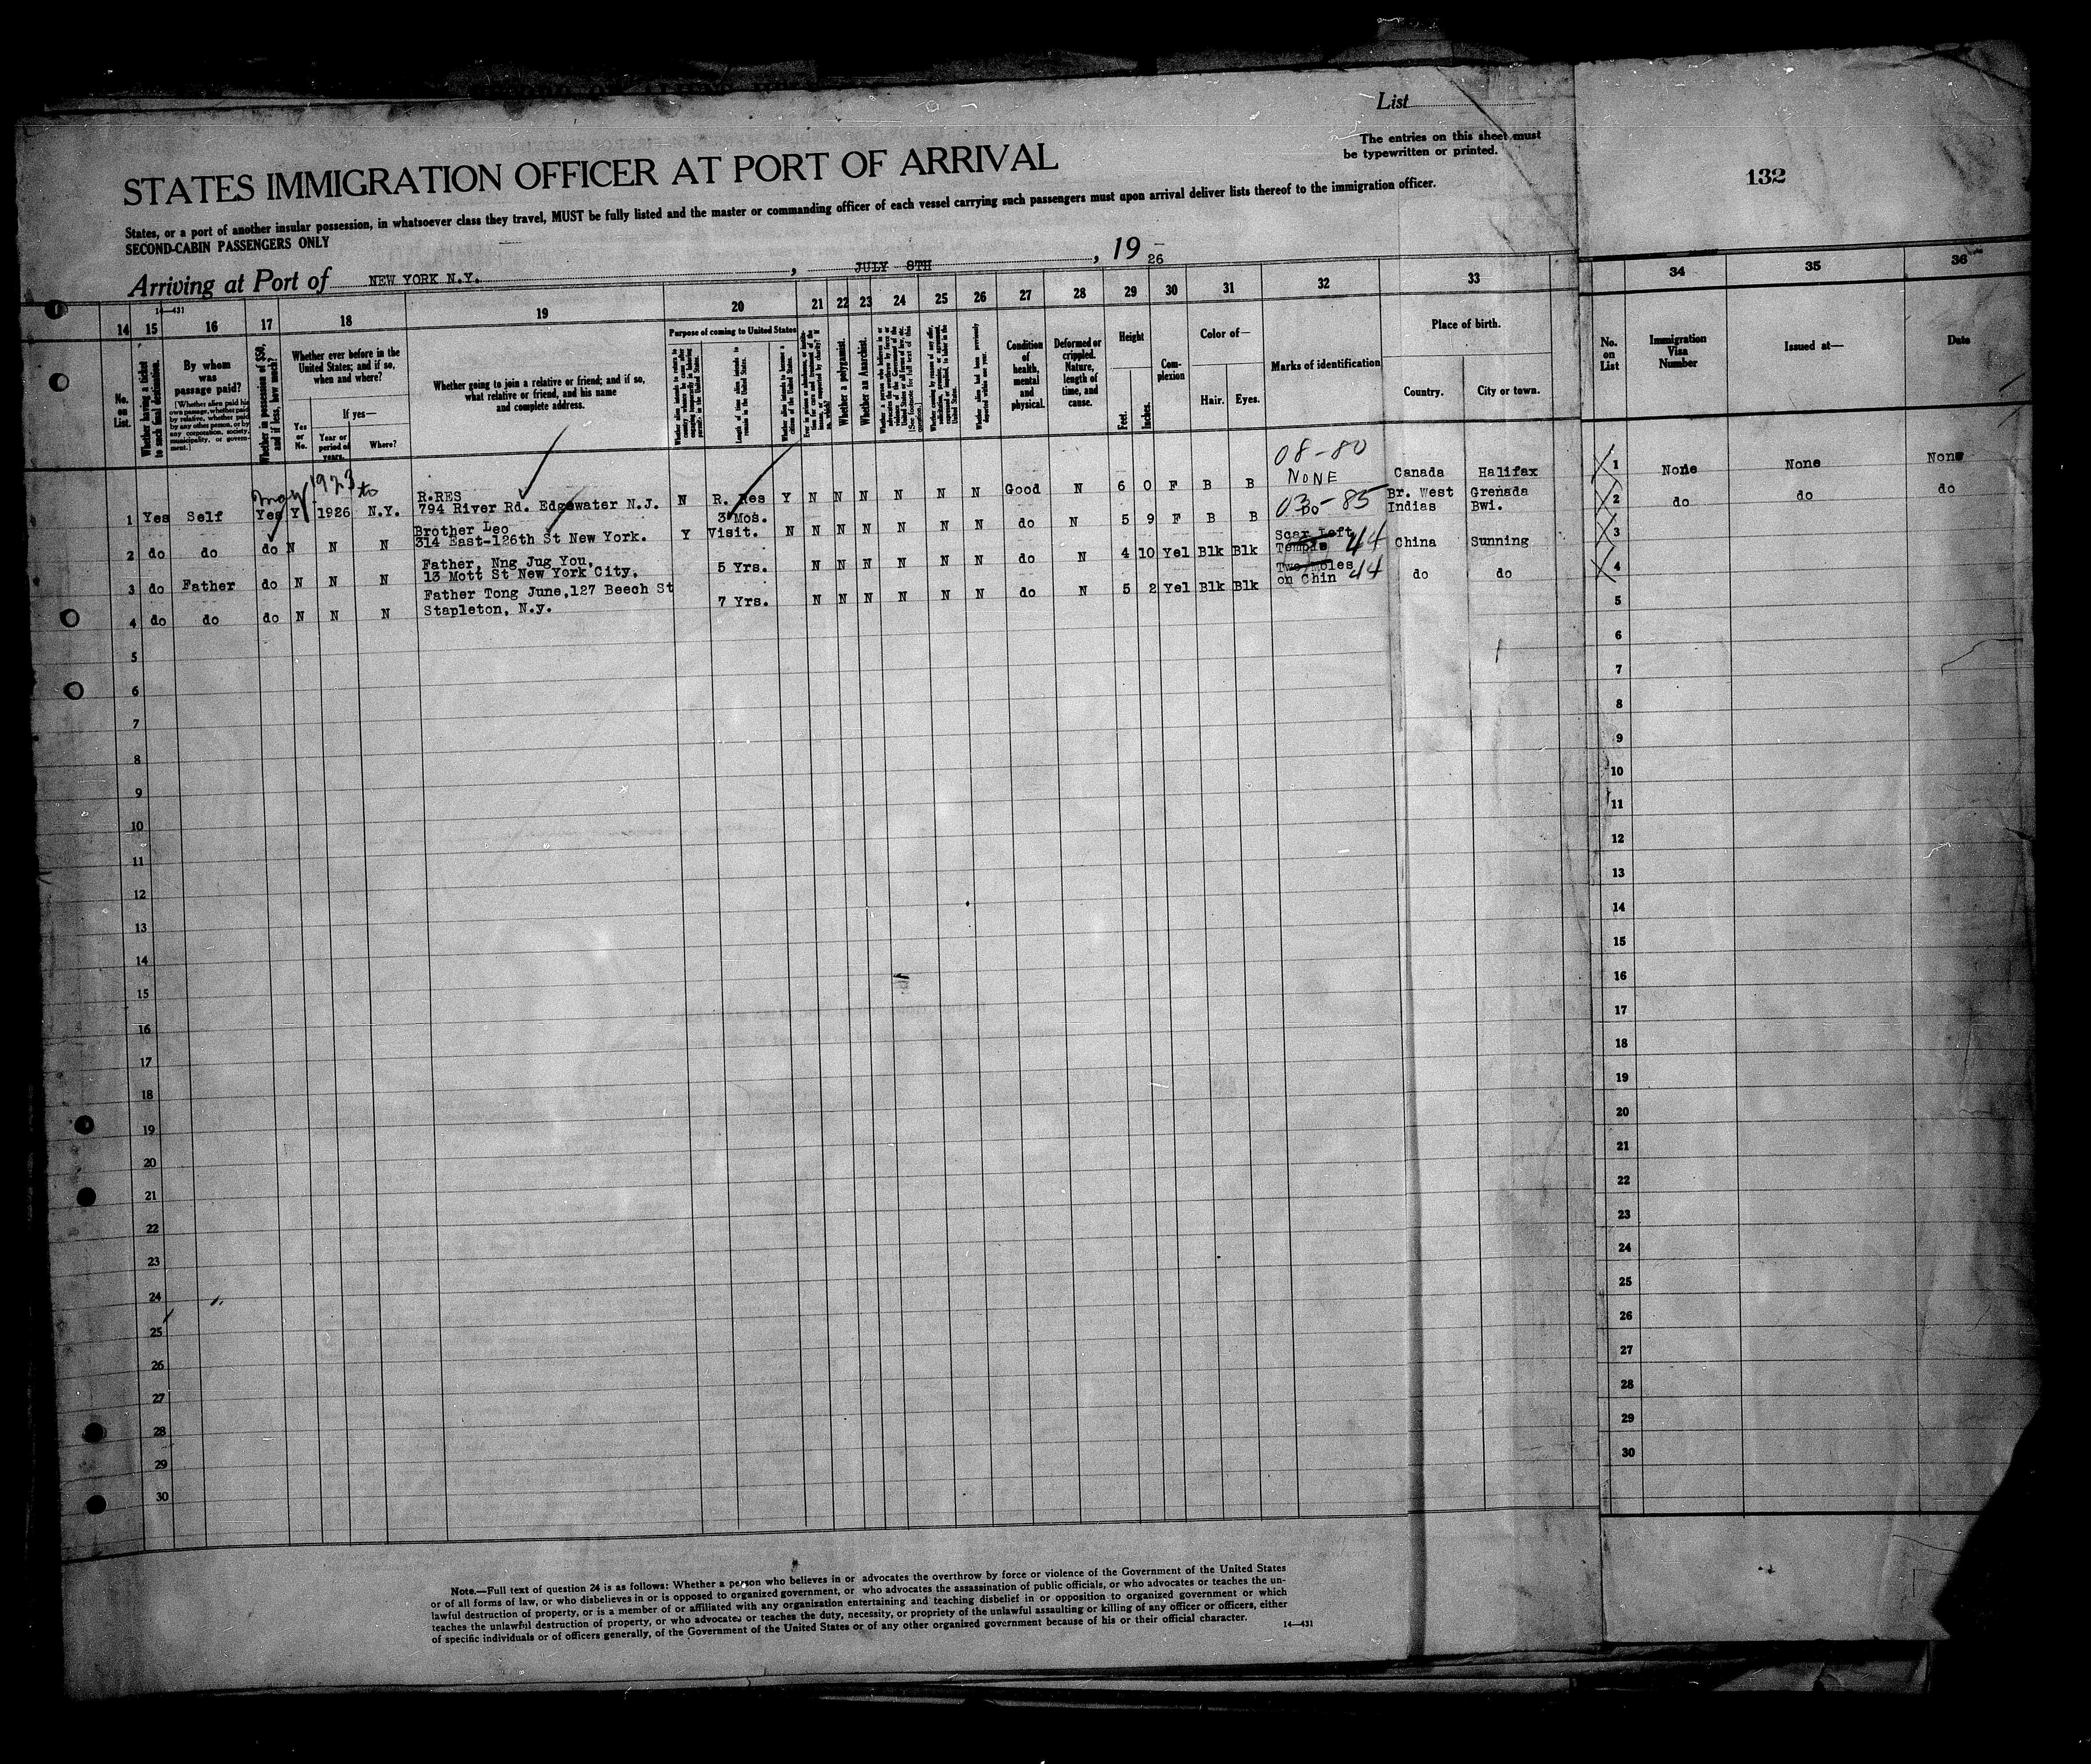 List
The entries on this sheet must
be typewritten or printed.
132
STATES IMMIGRATION OFFICER AT PORT OF ARRIVAL
States, or a port of another insular possession, in whatsoever class they travel, MUST be fully listed and the master or commanding officer of each vessel carrying such passengers must upon arrival deliver lists thereof to the immigration officer.
SECOND-CABIN PASSENGERS ONLY
Arriving at Port of NEW YORK N.Y. , JULY 8TH , 19 26
14—431
14 15 16 17 18 19 20 21 22 23 24 25 26 27 28 29 30 31 32 33 34 35 36
No. on List.
Whether having a ticket to such final destination.
By whom was passage paid?
[Whether alien paid his own passage, whether paid by relative, whether paid by any other person, or by any corporation, society, municipality, or government.]
Whether in possession of $50, and if less, how much?
Whether ever before in the United States; and if so, when and where?
Yes or No.
If yes—
Year or period of years.
Where?
Whether going to join a relative or friend; and if so, what relative or friend, and his name and complete address.
Purpose of coming to United States
Length of time alien intends to remain in the United States.
Whether alien intends to become a citizen of the United States.
Whether a polygamist.
Whether an Anarchist.
Condition of health, mental and physical.
Deformed or crippled. Nature, length of time, and cause.
Height
Feet.
Inches.
Complexion
Color of—
Hair.
Eyes.
Marks of identification
Place of birth.
Country.
City or town.
No. on List
Immigration Visa Number
Issued at—
Date
May 1923 to
08-80
1 Yes Self Yes Y 1926 N.Y. R.RES 794 River Rd. Edgewater N.J. N R. Res Y N N N N N N Good N 6 0 F B B NONE Canada Halifax
03-85
2 do do do N N N Brother Leo 314 East-126th St New York. Y 3 Mos. Visit. N N N N N N N do N 5 9 F B B Br. West Indias Grenada Bwi.
3 do Father do N N N Father, Nng Jug You, 13 Mott St New York City, 5 Yrs. N N N N N N do N 4 10 Yel Blk Blk Scar Left Temple 44 China Sunning
4 do do do N N N Father Tong June,127 Beech St Stapleton, N.y. 7 Yrs. N N N N N N do N 5 2 Yel Blk Blk Two Moles on Chin 44 do do
5
6
7
8
9
10
11
12
13
14
15
16
17
18
19
20
21
22
23
24
25
26
27
28
29
30
1 None None None
2 do do do
3
4
5
6
7
8
9
10
11
12
13
14
15
16
17
18
19
20
21
22
23
24
25
26
27
28
29
30
Note.—Full text of question 24 is as follows: Whether a person who believes in or advocates the overthrow by force or violence of the Government of the United States
or of all forms of law, or who disbelieves in or is opposed to organized government, or who advocates the assassination of public officials, or who advocates or teaches the un-
lawful destruction of property, or is a member of or affiliated with any organization entertaining and teaching disbelief in or opposition to organized government or which
teaches the unlawful destruction of property, or who advocates or teaches the duty, necessity, or propriety of the unlawful assaulting or killing of any officer or officers, either
of specific individuals or of officers generally, of the Government of the United States or of any other organized government because of his or their official character.
14—431